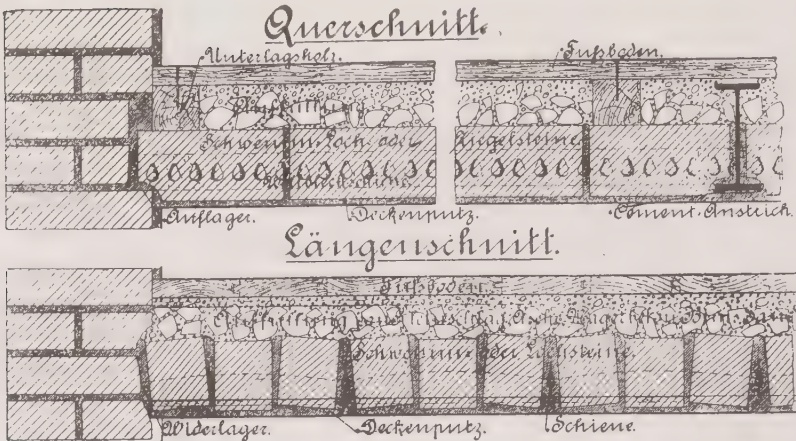 Querschnitt.
Unterlagsholz.
Fußboden.
Auffüllung
Schwemm-Loch-oder Ziegelsteine.
Auflager.
Deckenputz.
Cement-Anstrich.
Längenschnitt.
Fußboden.
Auffüllung
Schwemm- oder Lochsteine.
Widerlager.
Deckenputz.
Schiene.